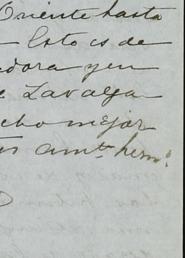 Oriente hasta
Esto es de
dora y en
e Lavalja
cho mejor
amte. hermo.